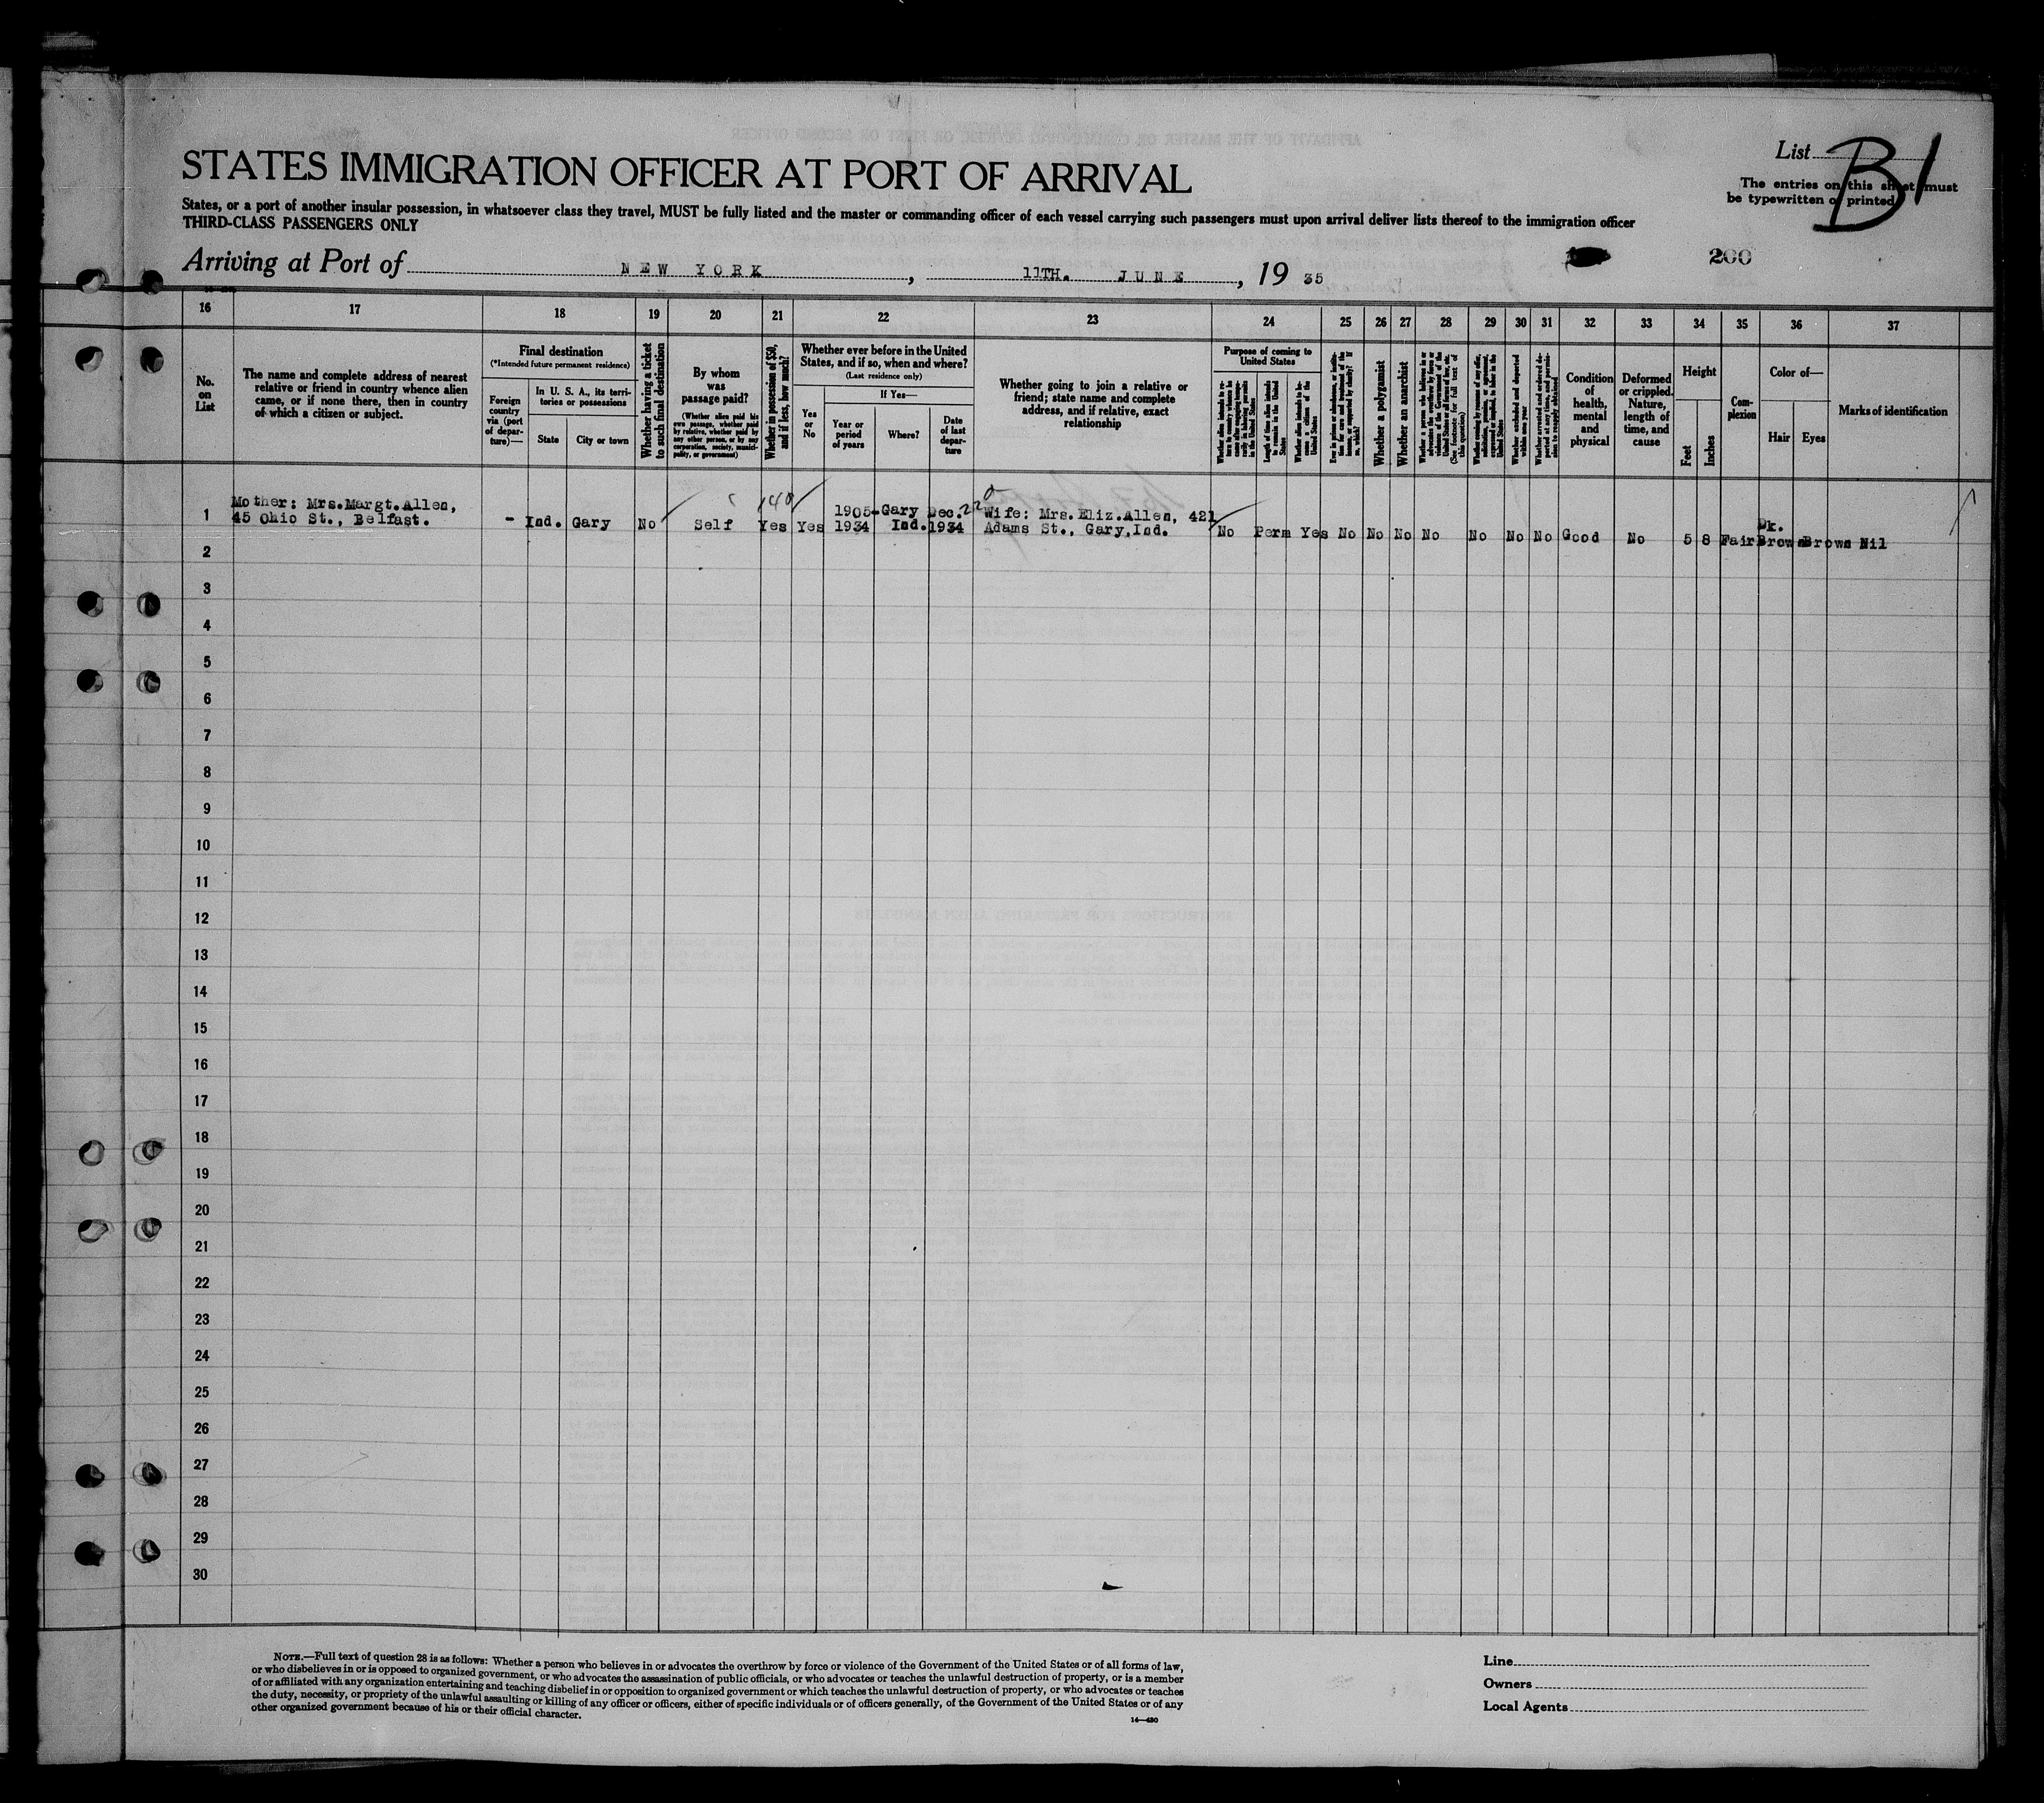 STATES IMMIGRATION OFFICER AT PORT OF ARRIVAL
List B1
The entries on this sheet must
be typewritten or printed
States, or a port of another insular possession, in whatsoever class they travel, MUST be fully listed and the master or commanding officer of each vessel carrying such passengers must upon arrival deliver lists thereof to the immigration officer
THIRD-CLASS PASSENGERS ONLY
Arriving at Port of NEW YORK, 11TH. JUNE, 19 35
200
16 17 18 19 20 21 22 23 24 25 26 27 28 29 30 31 32 33 34 35 36 37
No. on List
The name and complete address of nearest
relative or friend in country whence alien
came, or if none there, then in country
of which a citizen or subject.
Final destination
(*Intended future permanent residence)
Foreign country via (port of departure)—
In U. S. A., its territories or possessions
State
City or town
Whether having a ticket to such final destination
By whom was passage paid?
(Whether alien paid his own passage, whether paid by relative, whether paid by any other person, or by any corporation, society, municipality, or government)
Whether in possession of $50, and if less, how much?
Whether ever before in the United
States, and if so, when and where?
(Last residence only)
Yes or No
If Yes—
Year or period of years
Where?
Date of last departure
Whether going to join a relative or
friend; state name and complete
address, and if relative, exact
relationship
Purpose of coming to United States
Length of time alien intends to remain in the United States
Whether alien intends to become a citizen of the United States
Whether a polygamist
Whether an anarchist
(See footnote for full text of this question)
Condition of health, mental and physical
Deformed or crippled. Nature, length of time, and cause
Height
Feet
Inches
Complexion
Color of—
Hair
Eyes
Marks of identification
140
Mother: Mrs.Margt.Allen, 1905- Gary Dec. 22 Wife: Mrs.Eliz.Allen, 421 Dk.
1 45 Ohio St., Belfast. - Ind. Gary No Self Yes Yes 1934 Ind. 1934 Adams St., Gary,Ind. No Perm Yes No No No No No No No Good No 5 8 Fair Brown Brown Nil
2
3
4
5
6
7
8
9
10
11
12
13
14
15
16
17
18
19
20
21
22
23
24
25
26
27
28
29
30
NOTE.—Full text of question 28 is as follows: Whether a person who believes in or advocates the overthrow by force or violence of the Government of the United States or of all forms of law,
or who disbelieves in or is opposed to organized government, or who advocates the assassination of public officials, or who advocates or teaches the unlawful destruction of property, or is a member
of or affiliated with any organization entertaining and teaching disbelief in or opposition to organized government or which teaches the unlawful destruction of property, or who advocates or teaches
the duty, necessity, or propriety of the unlawful assaulting or killing of any officer or officers, either of specific individuals or of officers generally, of the Government of the United States or of any
other organized government because of his or their official character.
14—430
Line
Owners
Local Agents